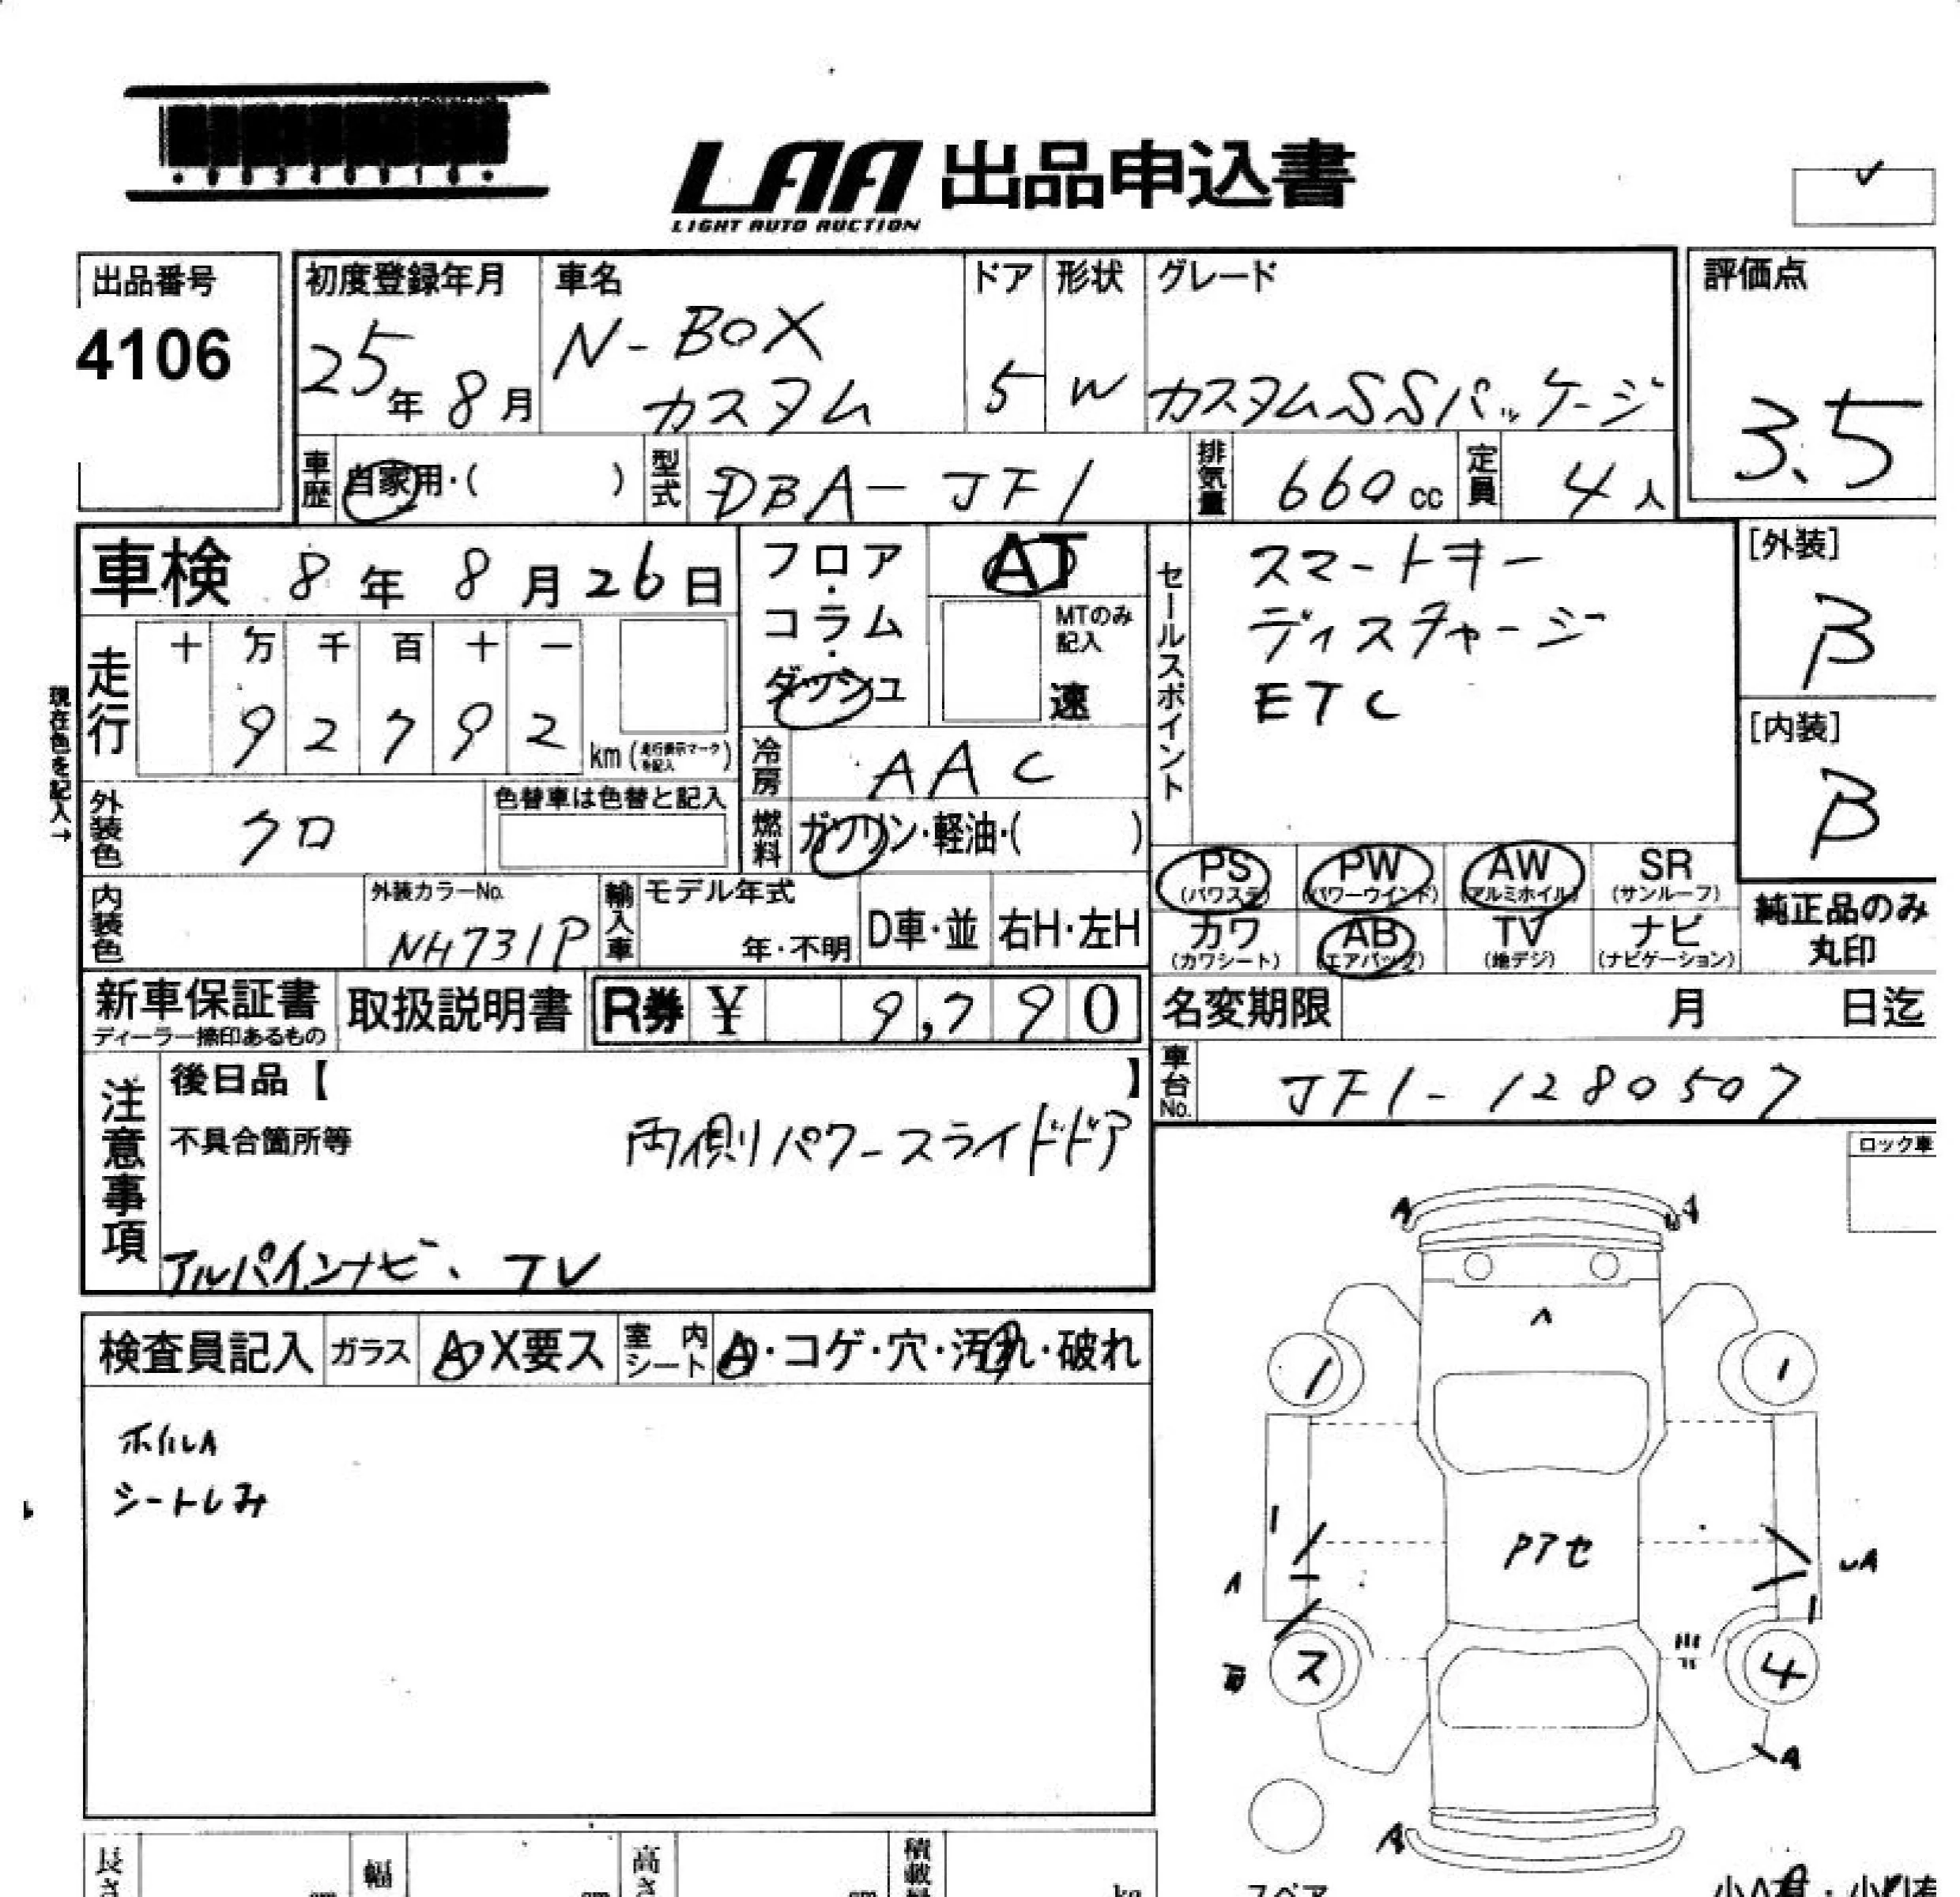 LAA 出品申込書
LIGHT AUTO AUCTION
出品番号
4106
初度登録年月
25年 8月
車名
N-BOX
カスタム
ドア
5
形状
W
グレード
カスタムSSパッケージ
評価点
3.5
車歴
自家用・( )
型式
DBA-JF1
排気量
660cc
定員
4人
車検 8年 8月26日
フロア・コラム・ダッシュ
AT
MTのみ記入
速
セールスポイント
スマートキー
ディスチャージ
ETC
[外装]
B
[内装]
B
現在色を記入→
走行
十 万 千 百 十 一
9 2 7 9 2
km (走行表示マークを記入)
冷房
AAC
外装色
クロ
色替車は色替と記入
燃料
ガソリン・軽油・( )
PS (パワステ)
PW (パワーウインド)
AW (アルミホイル)
SR (サンルーフ)
カワ (カワシート)
AB (エアバッグ)
TV (地デジ)
ナビ (ナビゲーション)
純正品のみ
丸印
内装色
外装カラーNo.
NH731P
輸入車
モデル年式
年・不明
D車・並
右H・左H
新車保証書
ディーラー捺印あるもの
取扱説明書
R券 ¥ 9,790
名変期限 月 日迄
車台No.
JF1-1280507
注意事項
後日品【 】
不具合箇所等
両側パワースライドドア
アルパインナビ、TV
ロック車
検査員記入
ガラス
A X要ス
室内シート
A・コゲ・穴・汚れ・破れ
ホイルA
シートしみ
A A
1 1
Pアセ
A
ス 4
A
A
長さ
幅
高さ
cm cm cm
kg
スペア